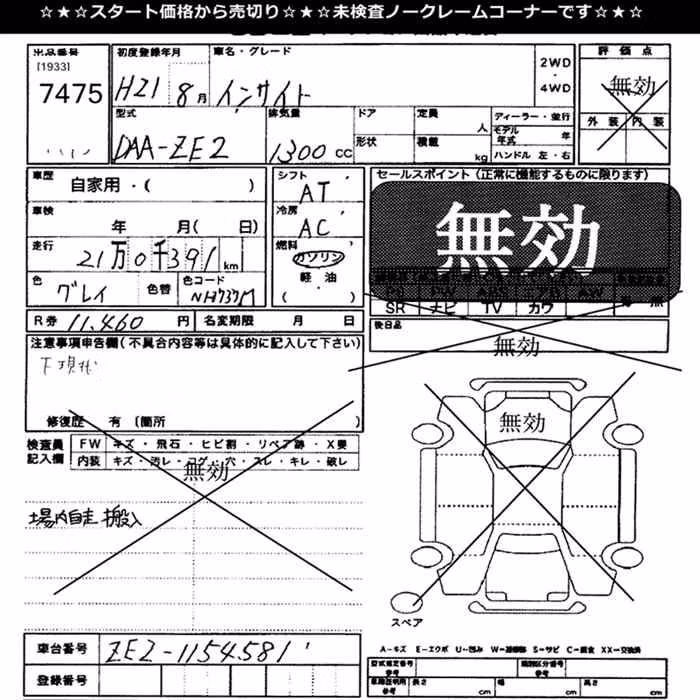 ☆★☆★スタート価格から売切り☆★☆★未検査ノークレームコーナーです☆★☆
出品番号
[1933]
7475
初度登録年月
H21 8月
車名・グレード
インサイト
2WD
・
4WD
評価点
無効
外装 内装
型式
DAA-ZE2
排気量
1300 cc
ドア
定員
人
形状
積載
kg
ディーラー・並行
モデル年式 年
ハンドル 左・右
車歴
自家用・( )
車検
年 月( 日)
走行
21万0千391 km
色
グレイ
色替
色コード
NH737M
シフト
AT
冷房
AC
燃料
ガソリン
・
軽油
・
( )
セールスポイント(正常に機能するものに限ります)
無効
SR ナビ TV カワ
後日品
無効
R券 11,460 円
名変期限 月 日
注意事項申告欄(不具合内容等は具体的に記入して下さい)
修復歴 有 〔箇所
検査員記入欄
FW キズ・飛石・ヒビ割・リペア跡・X要
内装 キズ・汚レ・コゲ・穴・スレ・キレ・破レ
無効
場内自走搬入
無効
スペア
車台番号
ZE2-1154581
登録番号
A-キズ E-エクボ U-凹み W-補修跡 S-サビ C-腐食 XX-交換済
型式指定番号
参考
類別区分番号
参考
車庫証明用
参考
長さ
cm
幅
cm
高さ
cm